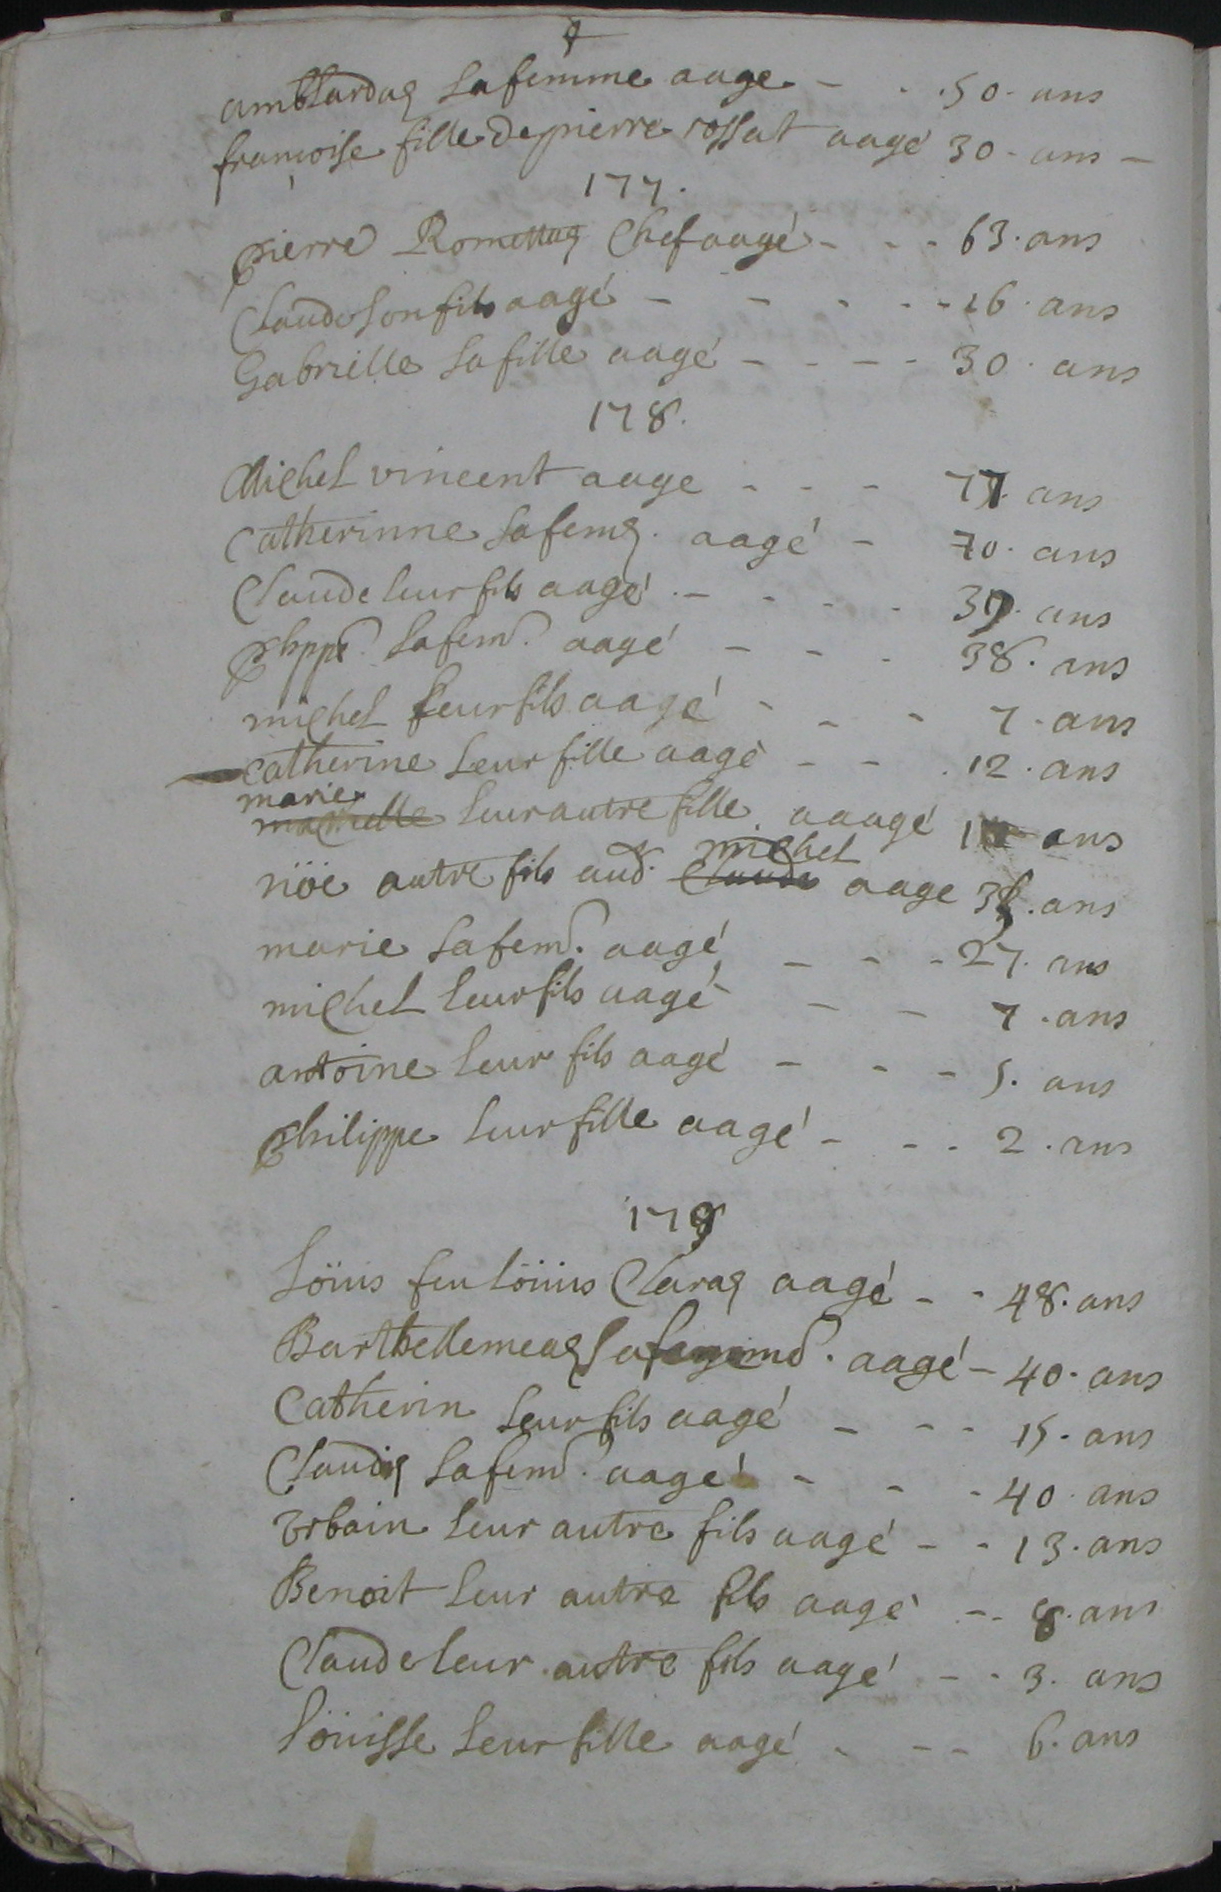 amblardaz sa femme aagé - - 50 - ans
françoise fille de pierre rossat aagé 30 - ans -
177.
pierre Romettaz Chef aagé - - - 63. ans
Claude son fils aagé - - - - - 26. ans
Gabrielle sa fille aagé - - - - 30. ans
178.
Michel vincent aage - - - 77. ans
Catherinne sa femẽ. aagé - 70. ans
Claude leur fils aagé. - - - - 39. ans
phppe. sa femẽ. aagé - - - 38. ans
michel leur fils aagé - - - 7. ans
Catherine leur fille aagé - - - 12. ans
marie
leur autre fille. aaagé ans
nöe autre fils aud. michel
Claude aage ans
marie sa femẽ. aagé - - - 27. ans
michel leur fils aagé - - - 7. ans
antoine leur fils aagé - - - 5. ans
philippe leur fille aagé - - - 2. ans
179
Löuis feu löuius Claraz aagé - - 48. ans
Barthellemeaz sa femẽ. aagé - 40. ans
Catherin leur fils aagé - - - 15. ans
Claudaz sa femẽ. aagé - - - 40. ans
Vrbain leur autre fils aagé - - 13. ans
Benoit leur autre fils aagé - - 8. ans
Claude leur autre fils aagé - - 3. ans
löuisse leur fille aagé - - - 6. ans